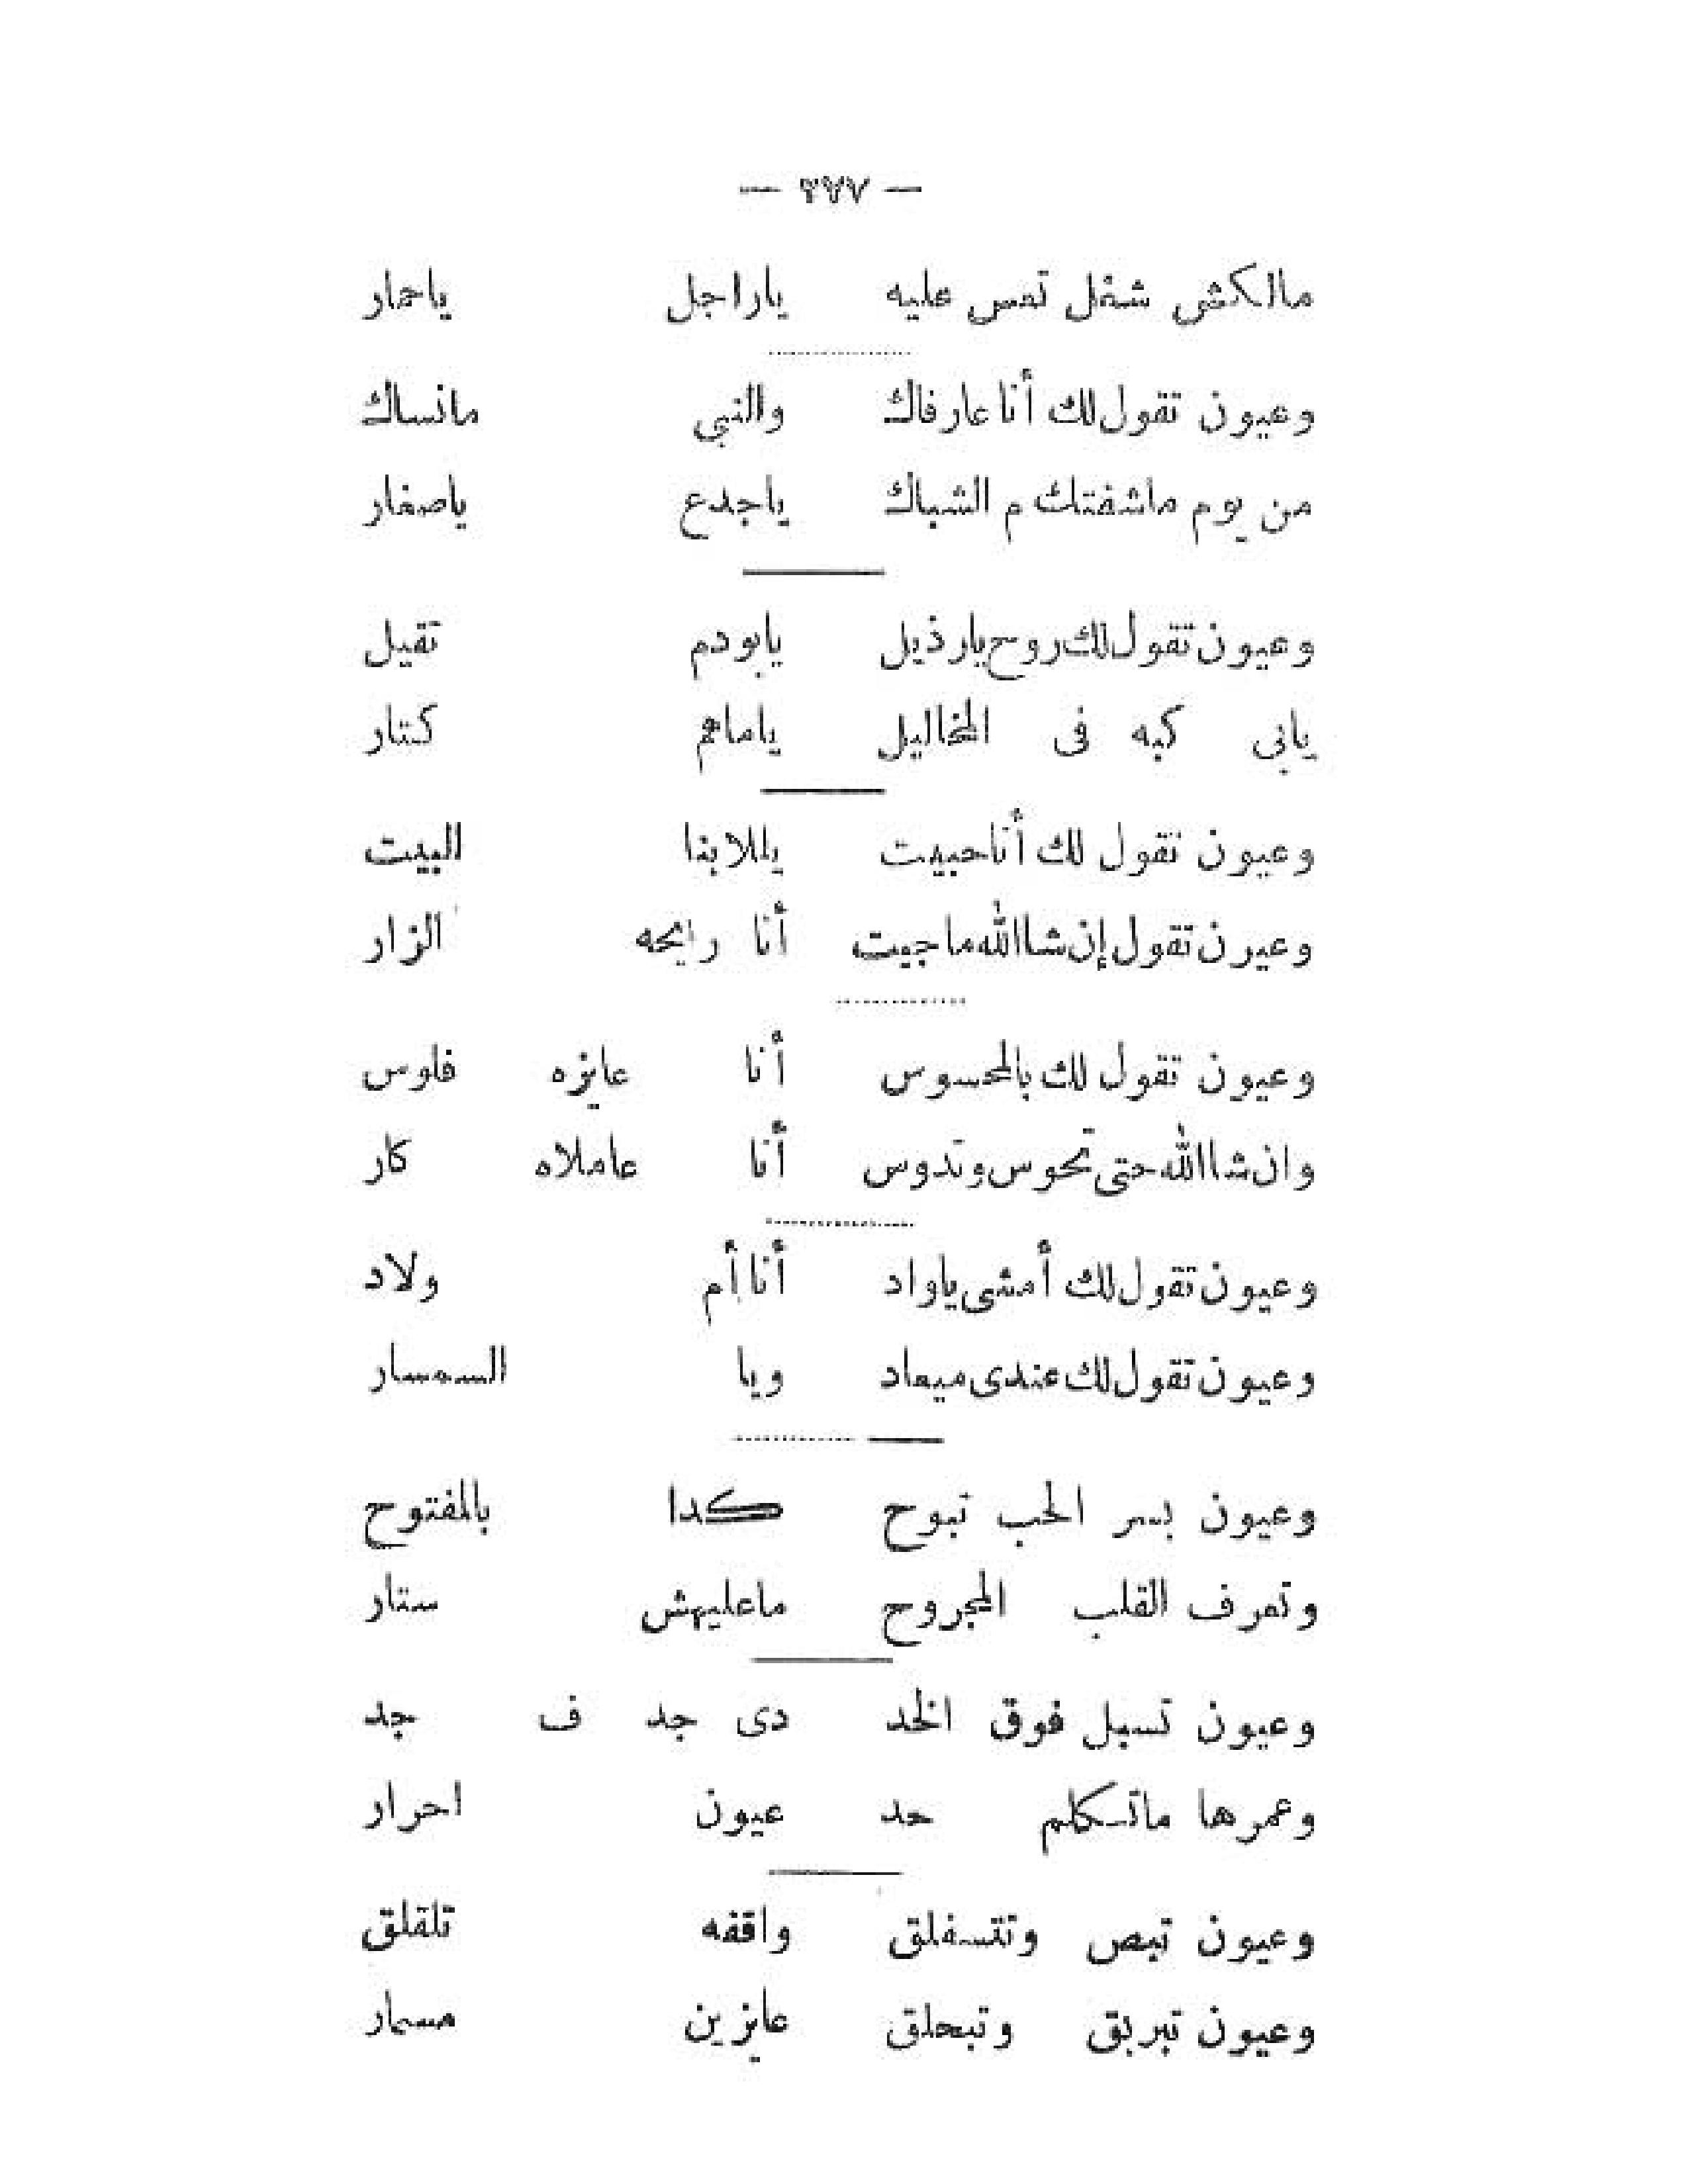 — ٢٧٧ —
مالكش شغل تمس عليه ياراجل ياحمار
وعيون تقول لك أنا عارفاك والنبي مانساك
من يوم ماشفتك م الشباك ياجدع ياصغار
وعيون تقول لك روح يارذيل يابودم تقيل
يانى كبه فى المخاليل ياماهم كتار
وعيون تقول لك أنا حبيت ياللا بنا البيت
وعيون تقول إن شاالله ماجيت أنا رايحه الزار
وعيون تقول لك بالمحسوس أنا عايزه فلوس
وان شاالله حتى تحوس وتدوس أنا عاملاه كار
وعيون تقول لك أمشى ياواد أنا أم ولاد
وعيون تقول لك عندى ميعاد ويا السمسار
وعيون بسر الحب تبوح كدا بالمفتوح
وتعرف القلب المجروح ماعليهش ستار
وعيون تسبل فوق الخد دى جد ف جد
وعمرها ماتكلم حد عيون احرار
وعيون تبص وتتسفلق واقفه تلقلق
وعيون تبربق وتبحلق عايزين مسمار